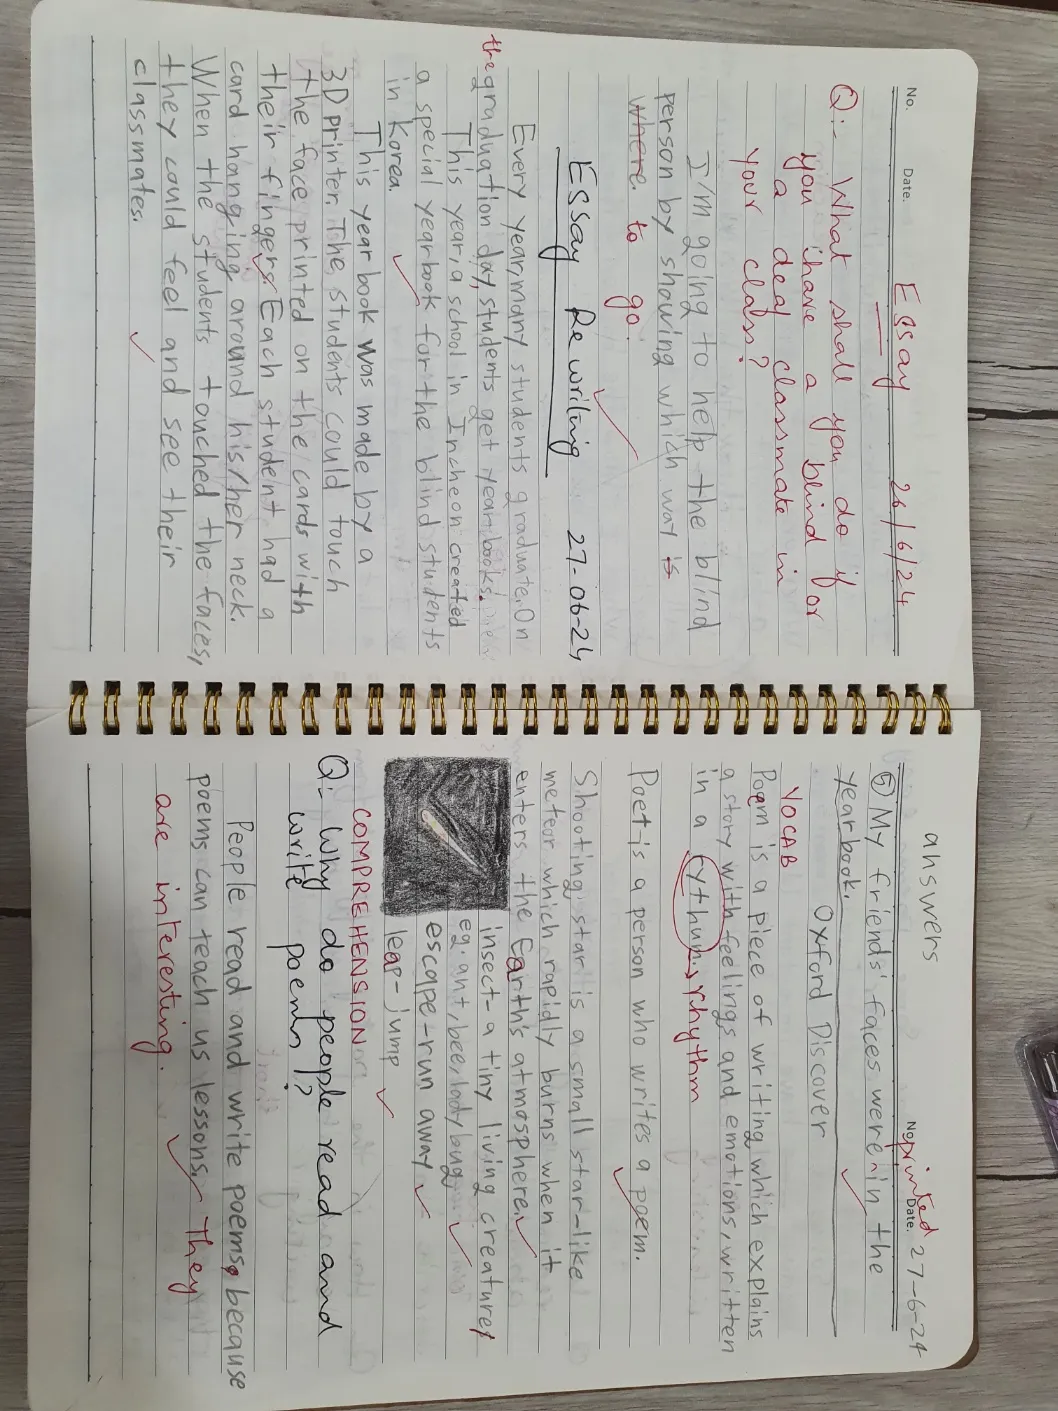 No.
Date.
Essay 26/6/24
Q:- What shall you do if
you have a blind or
a deaf classmate in
your class?
I'm going to help the blind
person by showing which way is
where to go.
Essay Rewriting 27-06-24
Every year, many students graduate. On
the graduation day, students get yearbooks.
This year, a school in Incheon created
a special yearbook for the blind students
in Korea.
This yearbook was made by a
3D printer. The students could touch
the face printed on the cards with
their fingers. Each student had a
card hanging around his/her neck.
When the students touched the faces,
they could feel and see their
classmates.
answers
No.
Date. 27-6-24
printed
⑤ My friends' faces were ^ in the
yearbook.
Oxford Discover
VOCAB
Poem is a piece of writing which explains
a story with feelings and emotions, written
in a rythum. → rhythm
Poet-is a person who writes a poem.
Shooting star is a small star-like
meteor which rapidly burns when it
enters the Earth's atmosphere.
insect-a tiny living creature
eg. ant, bee, ladybug
escape-run away
leap-jump
COMPREHENSION
Q:- Why do people read and
write poems?
People read and write poems, because
poems can teach us lessons. They
are interesting.